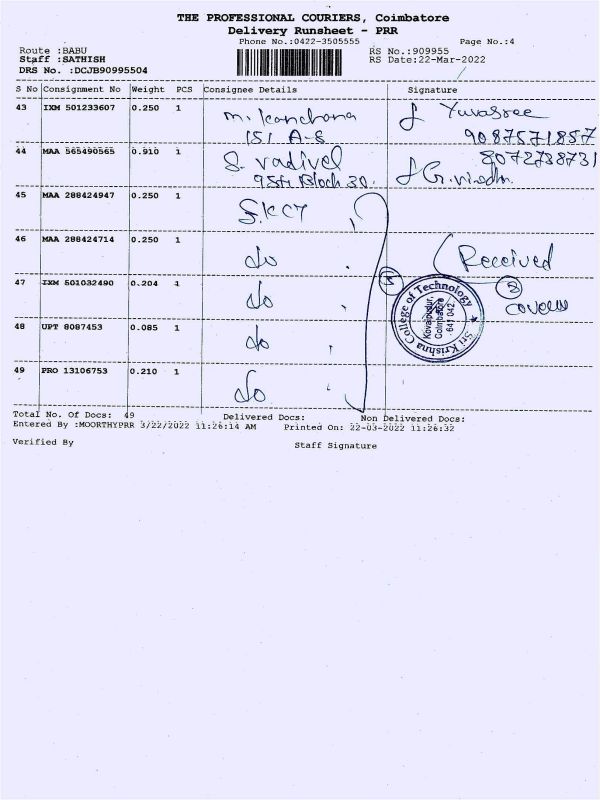 THE PROFESSIONAL COURIERS, Coimbatore
Delivery Runsheet - PRR
Phone No.:0422-3505555 Page No.:4
Route :BABU RS No.:909955
Staff :SATHISH RS Date:22-Mar-2022
DRS No. :DCJB90995504
S No Consignment No Weight PCS Consignee Details Signature
43 IXM 501233607 0.250 1 M. Kanchana Yuvasree
151 A-8 9087571857
44 MAA 565490565 0.910 1 S. Vadivel 8072738731
Block 30.
45 MAA 288424947 0.250 1 S.KCT
46 MAA 288424714 0.250 1 do Received
47 IXM 501032490 0.204 1 do 5 8 covers
Sri Krishna College of Technology
Kovaipudur,
Coimbatore
641 042.
48 UPT 8087453 0.085 1 do
49 PRO 13106753 0.210 1 do
Total No. Of Docs: 49 Delivered Docs: Non Delivered Docs:
Entered By :MOORTHYPRR 3/22/2022 11:26:14 AM Printed On: 22-03-2022 11:26:32
Verified By Staff Signature